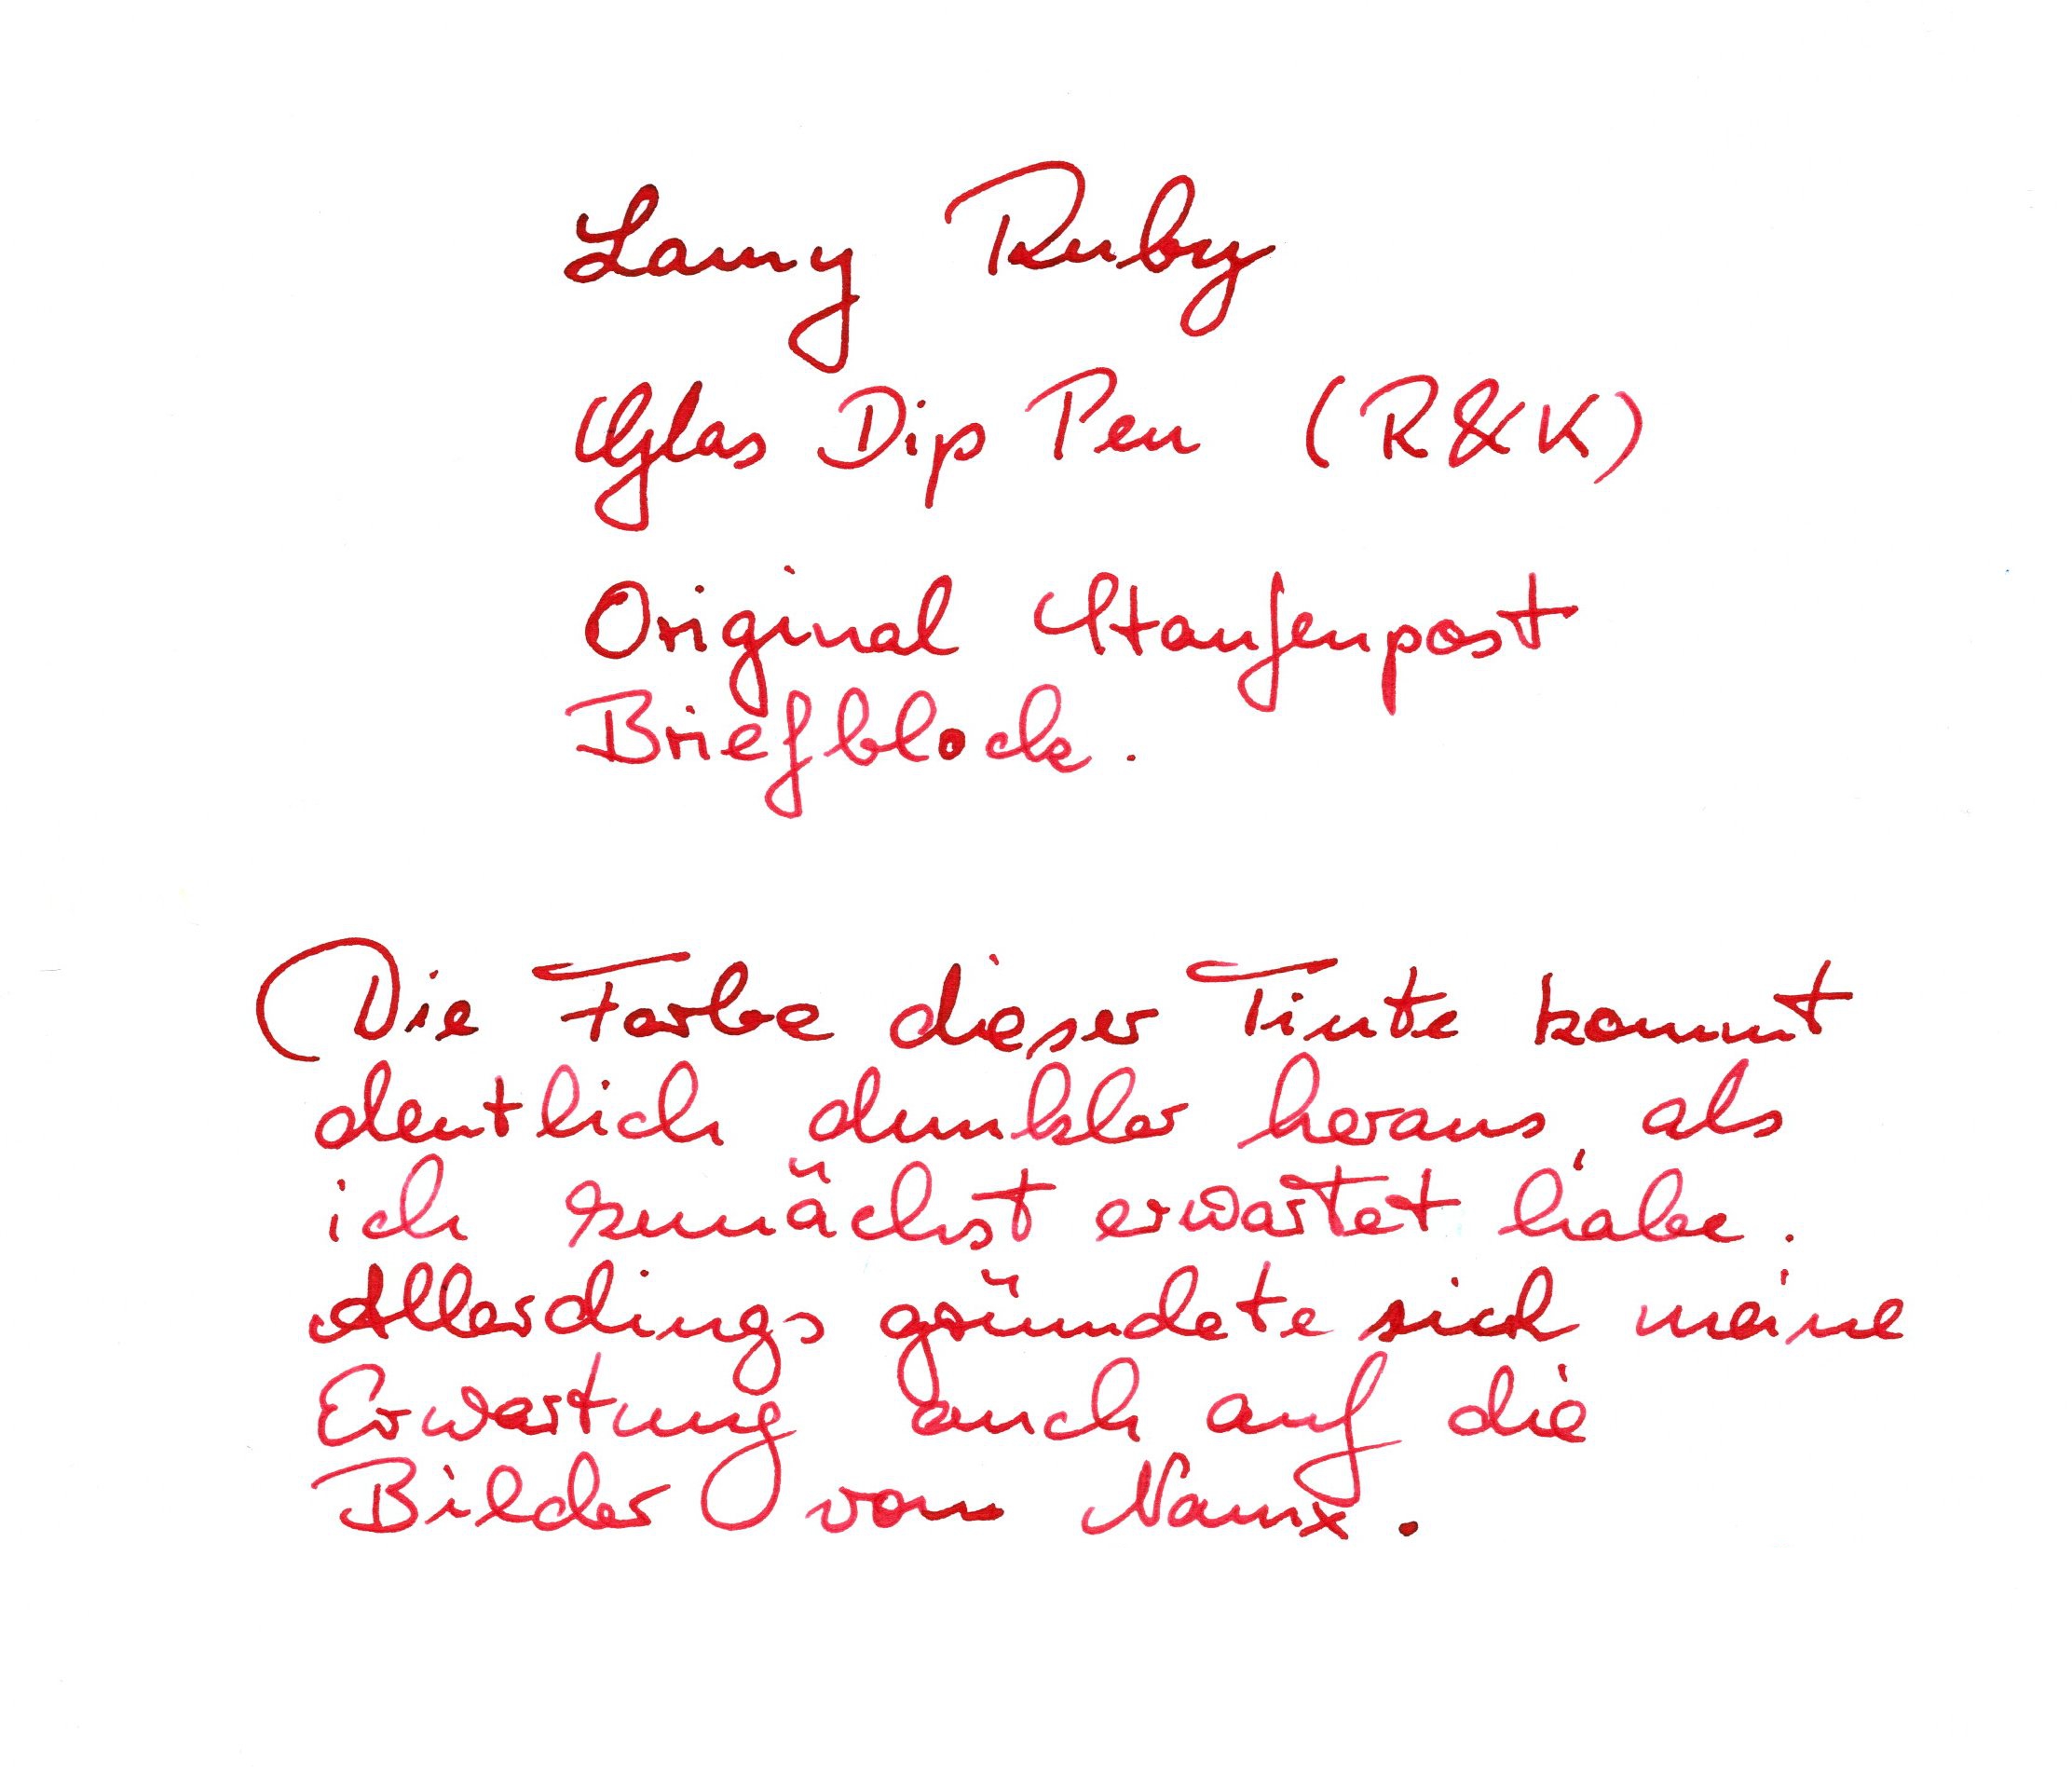 Lamy Ruby
Glas Dip Pen (R&K)
Original Staufenpost
Briefblock.
Die Farbe dieser Tinte kommt
deutlich dunkler heraus, als
ich zunächst erwartet habe.
Allerdings gründete sich meine
Erwartung auch auf die
Bilder vom Namx.